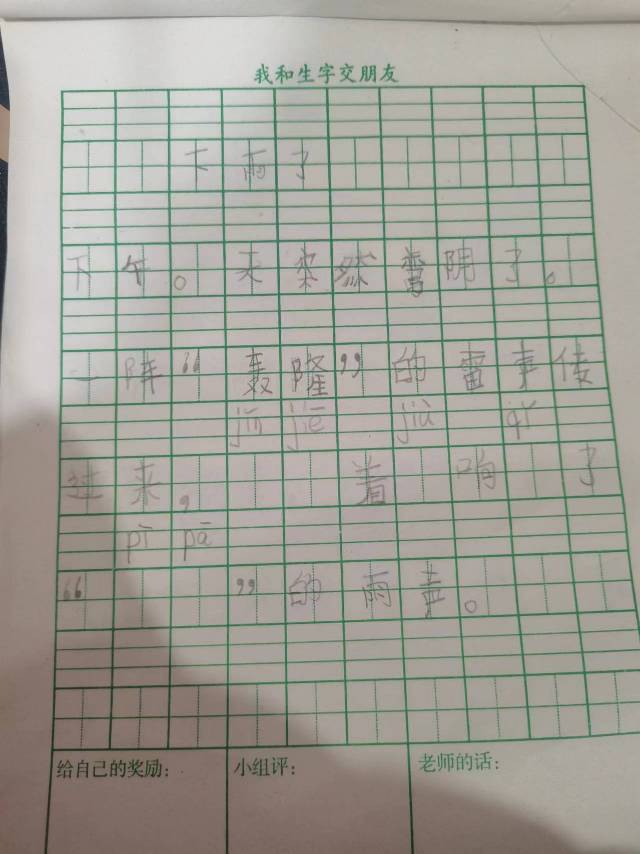 我和生字交朋友
下雨了
下午。突然阴了。
一阵“轰隆”的雷声传
jīn jiē jiù qǐ
过来,着响了
pī pā
“ ”的雨声。
给自己的奖励: 小组评: 老师的话: